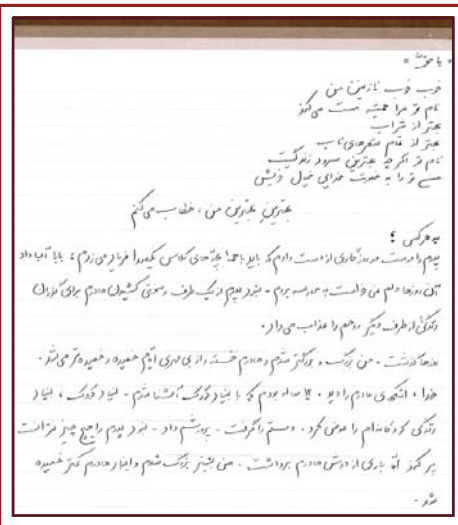 « یا حق »
خوب خوب نازنین من
نام تو مرا همیشه مست می‌کند
بهتر از شراب
بهتر از تمام شعرهای ناب
نام تو اگر چه بهترین سرود زندگیست
من تو را به خلوت خدایی خیال خویش
بهترین بهترین من ، خطاب می‌کنم
پدرم را درست در روزگاری از دست دادم که باید با همه بچه‌های کلاسی یکصدا فریاد می‌زدم : بابا آب داد
آن روزها دلم نمی‌خواست به مدرسه بروم - نبود پدرم از یک طرف و سختی کشیدن مادرم برای گذران
زندگی از طرف دیگر روحم را عذاب می‌داد .
روزها گذشت . من بزرگ و بزرگتر شدم و مادرم خسته و از بی مهری ایام خمیده و خمیده‌تر می‌شد .
خدا ، اشکهای مادرم را دید . ساله بودم که با بنیاد کودک آشنا شدم - بنیاد کودک ، بنیاد
زندگی کودکانه‌ام را عوض کرد . دستم را گرفت - پرورشم داد - نبود پدرم را هیچ چیز نتوانست
پر کند اما باری از دوش مادرم برداشت . من بیشتر بزرگ شدم و اینبار مادرم کمتر خمیده
شد .